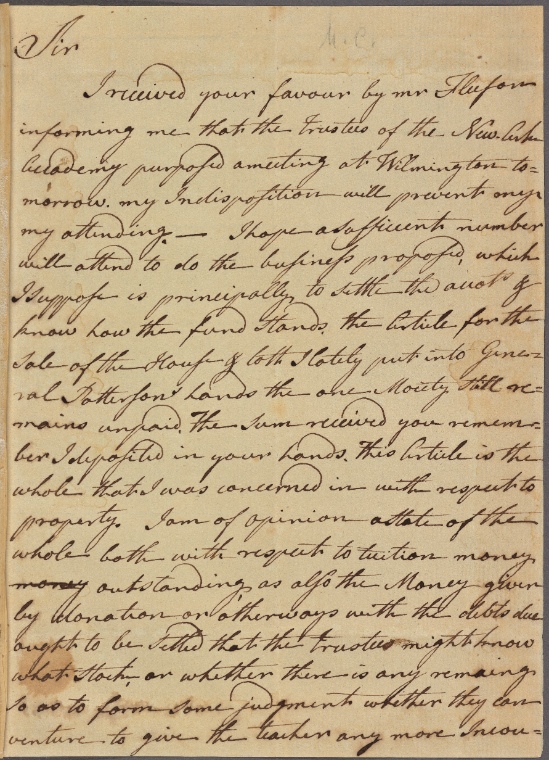 M.C.
Sir
I received your favour by mr
informing me that the trustees of the New-Ark
Accademy purposed a meeting at Wilmington to=
morrow. my Indisposition will prevent
my attending. — I hope a sufficient number
will attend to do the business proposed, which
I suppose is principally to settle the accots &
know how the fund stands. the Article for the
Sale of the House & loth I lately put into Gene=
ral Pattersons hands the one Moiety still re=
mains unpaid. The sum received you remem=
ber I deposited in your hands. This Article is the
whole that I was concerned in with respect to
property. I am of opinion a state of the
whole both with respect to tuition money
money outstanding, as also the Money given
by donation or otherways with the debts due
ought to be settled that the trustees might know
what Stock, or whether there is any remaing
so as to form some judgment whether they can
venture to give the teacher any more Incou=